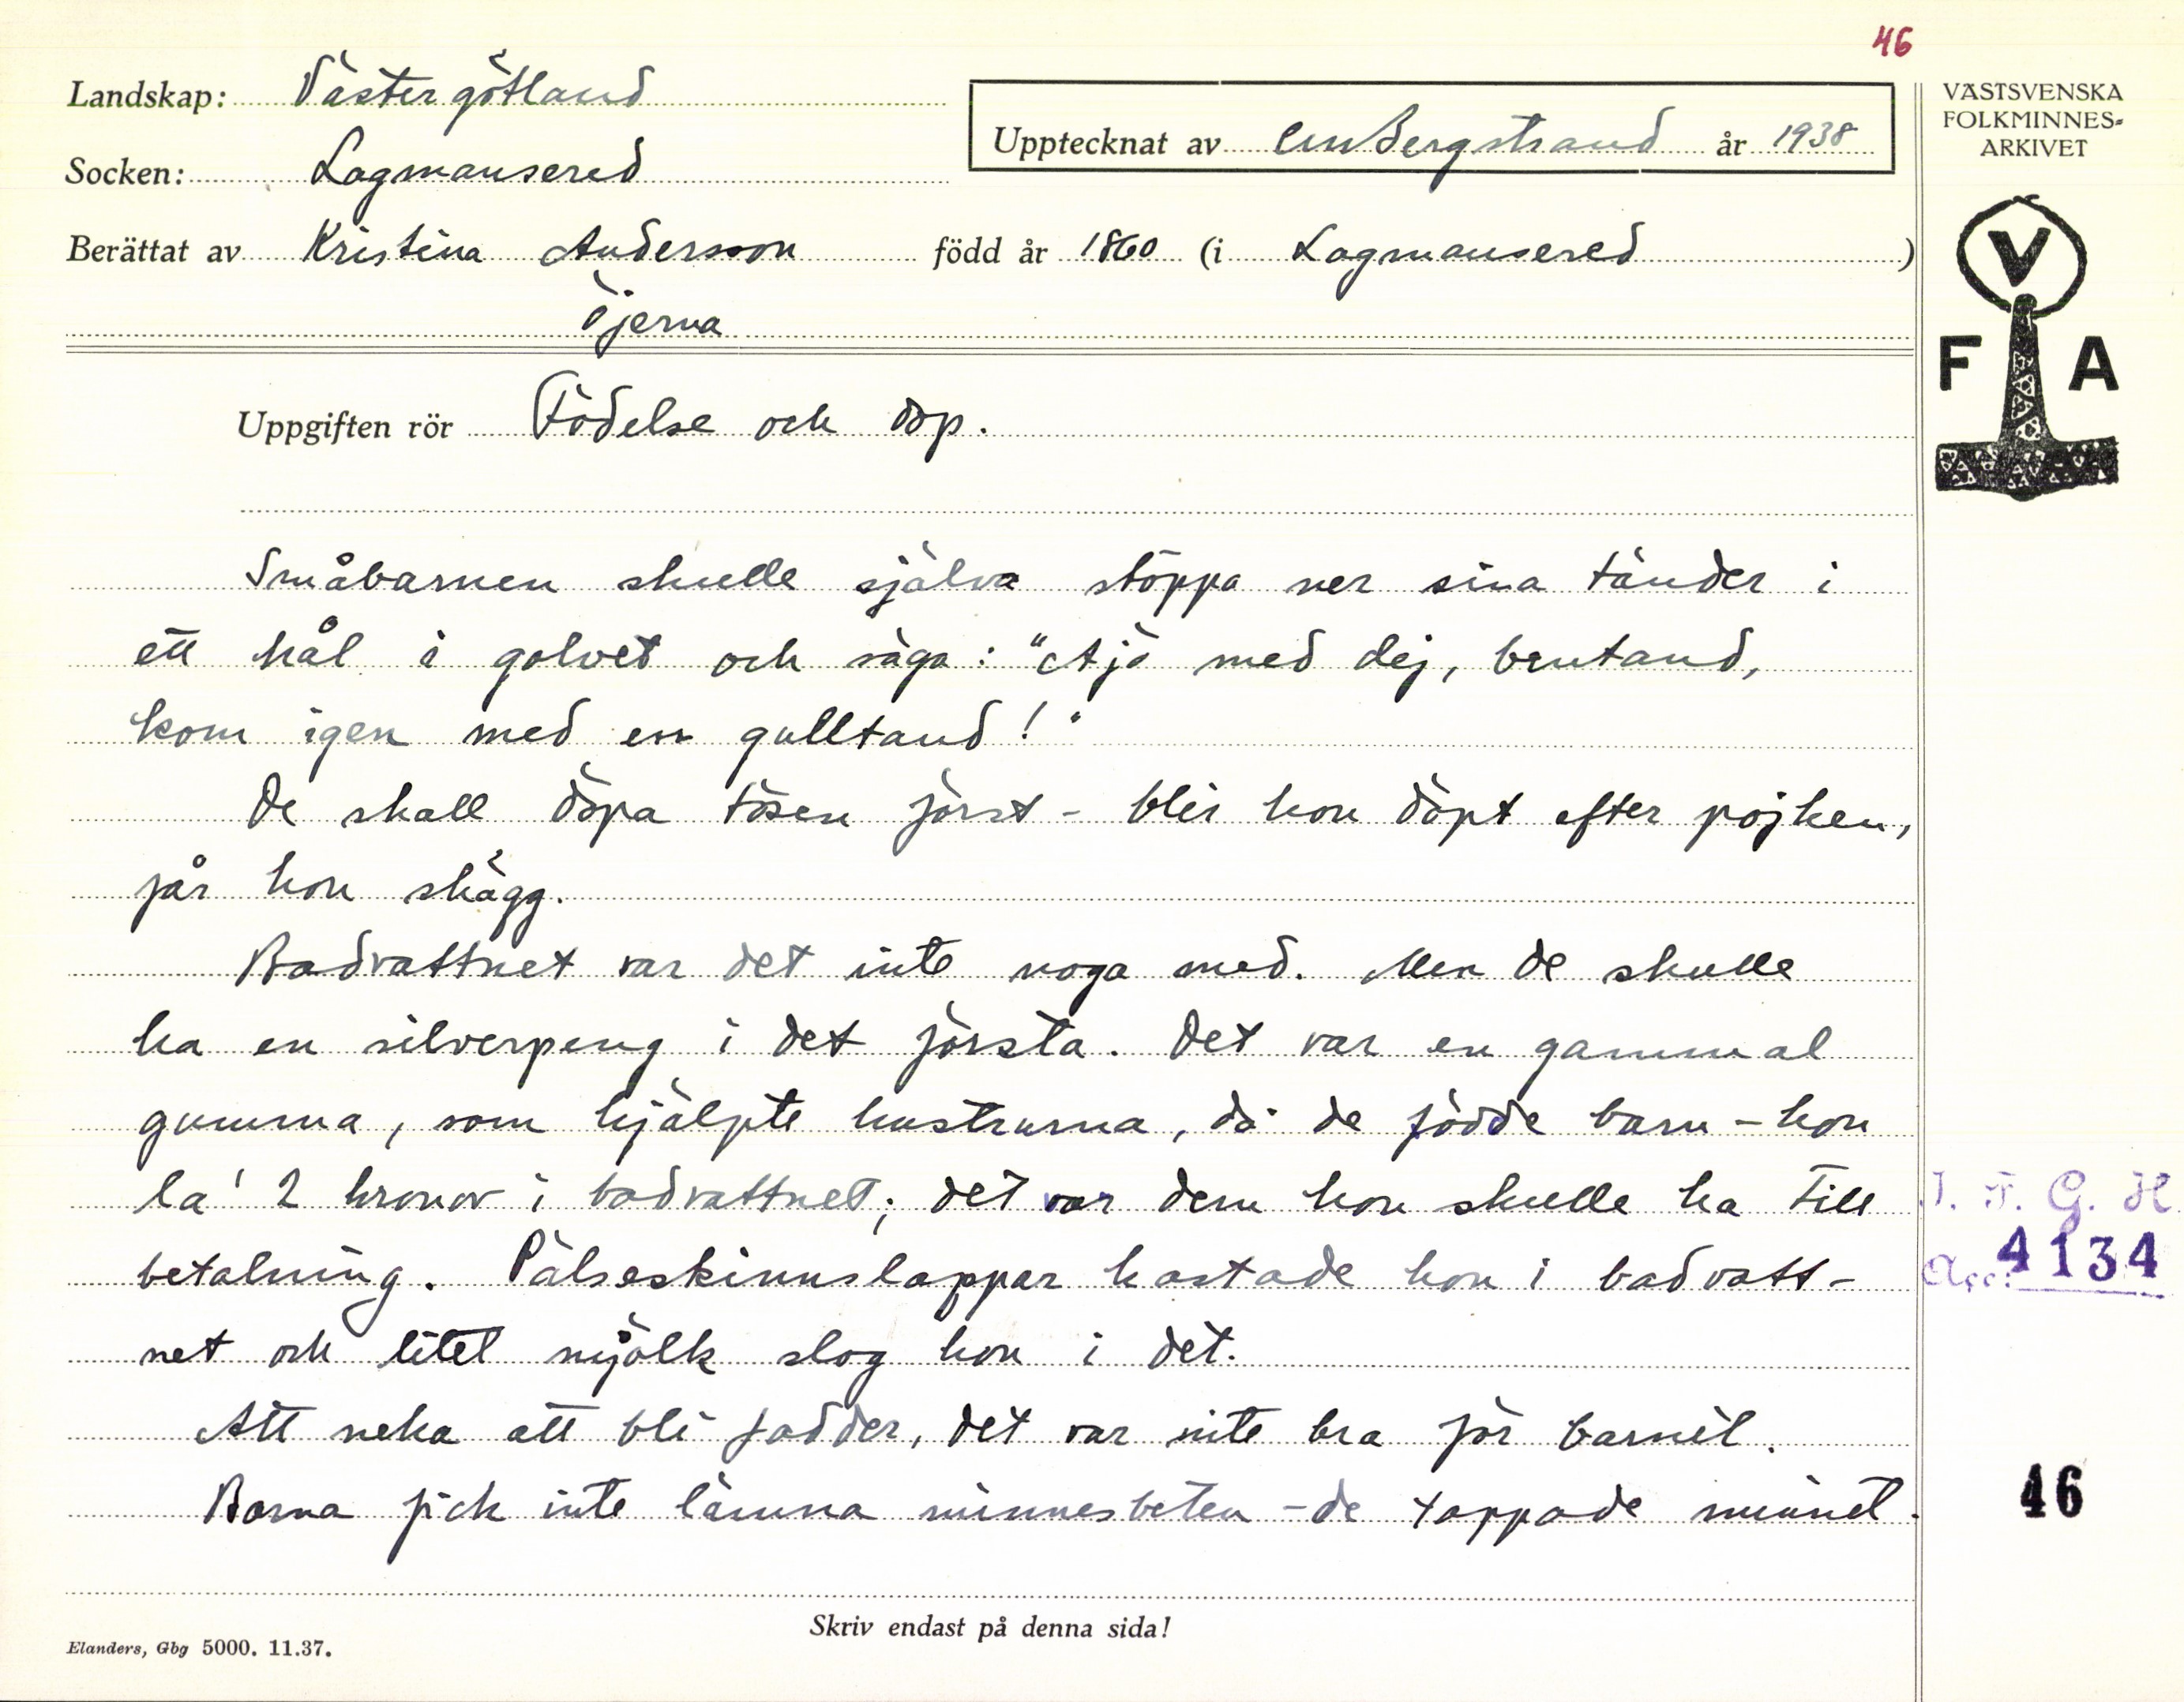 46
Landskap: Västergötland
Upptecknat av CMBergstrand år 1938
VÄSTSVENSKA
FOLKMINNES-
ARKIVET
Socken: Lagmansered
Berättat av Kristina Andersson född år 1860 (i Lagmansered)
Öjerna
V
F A
Uppgiften rör Födelse och dop.
Småbarnen skulle själva stoppa ner sina tänder i
ett hål i golvet och säga: "Ajö med dej, bentand,
kom igen med en gulltand!"
De skall döpa tösen först - blir hon döpt efter pojken,
får hon skägg.
Badvattnet var det inte noga med. Men de skulle
ha en silverpeng i det första. Det var en gammal
gumma, som hjälpte hustrurna, då de födde barn - hon
la' 2 kronor i badvattnet; det var dem hon skulle ha till
betalning. Pälseskinnslappar kastade hon i badvatt-
net och litet mjölk slog hon i det.
Att neka att bli fadder, det var inte bra för barnet.
Barna fick inte lämna minnesbeten - de tappade minnet.
I. F. G. H.
Acc: 4134
46
Skriv endast på denna sida!
Elanders, Gbg 5000. 11.37.